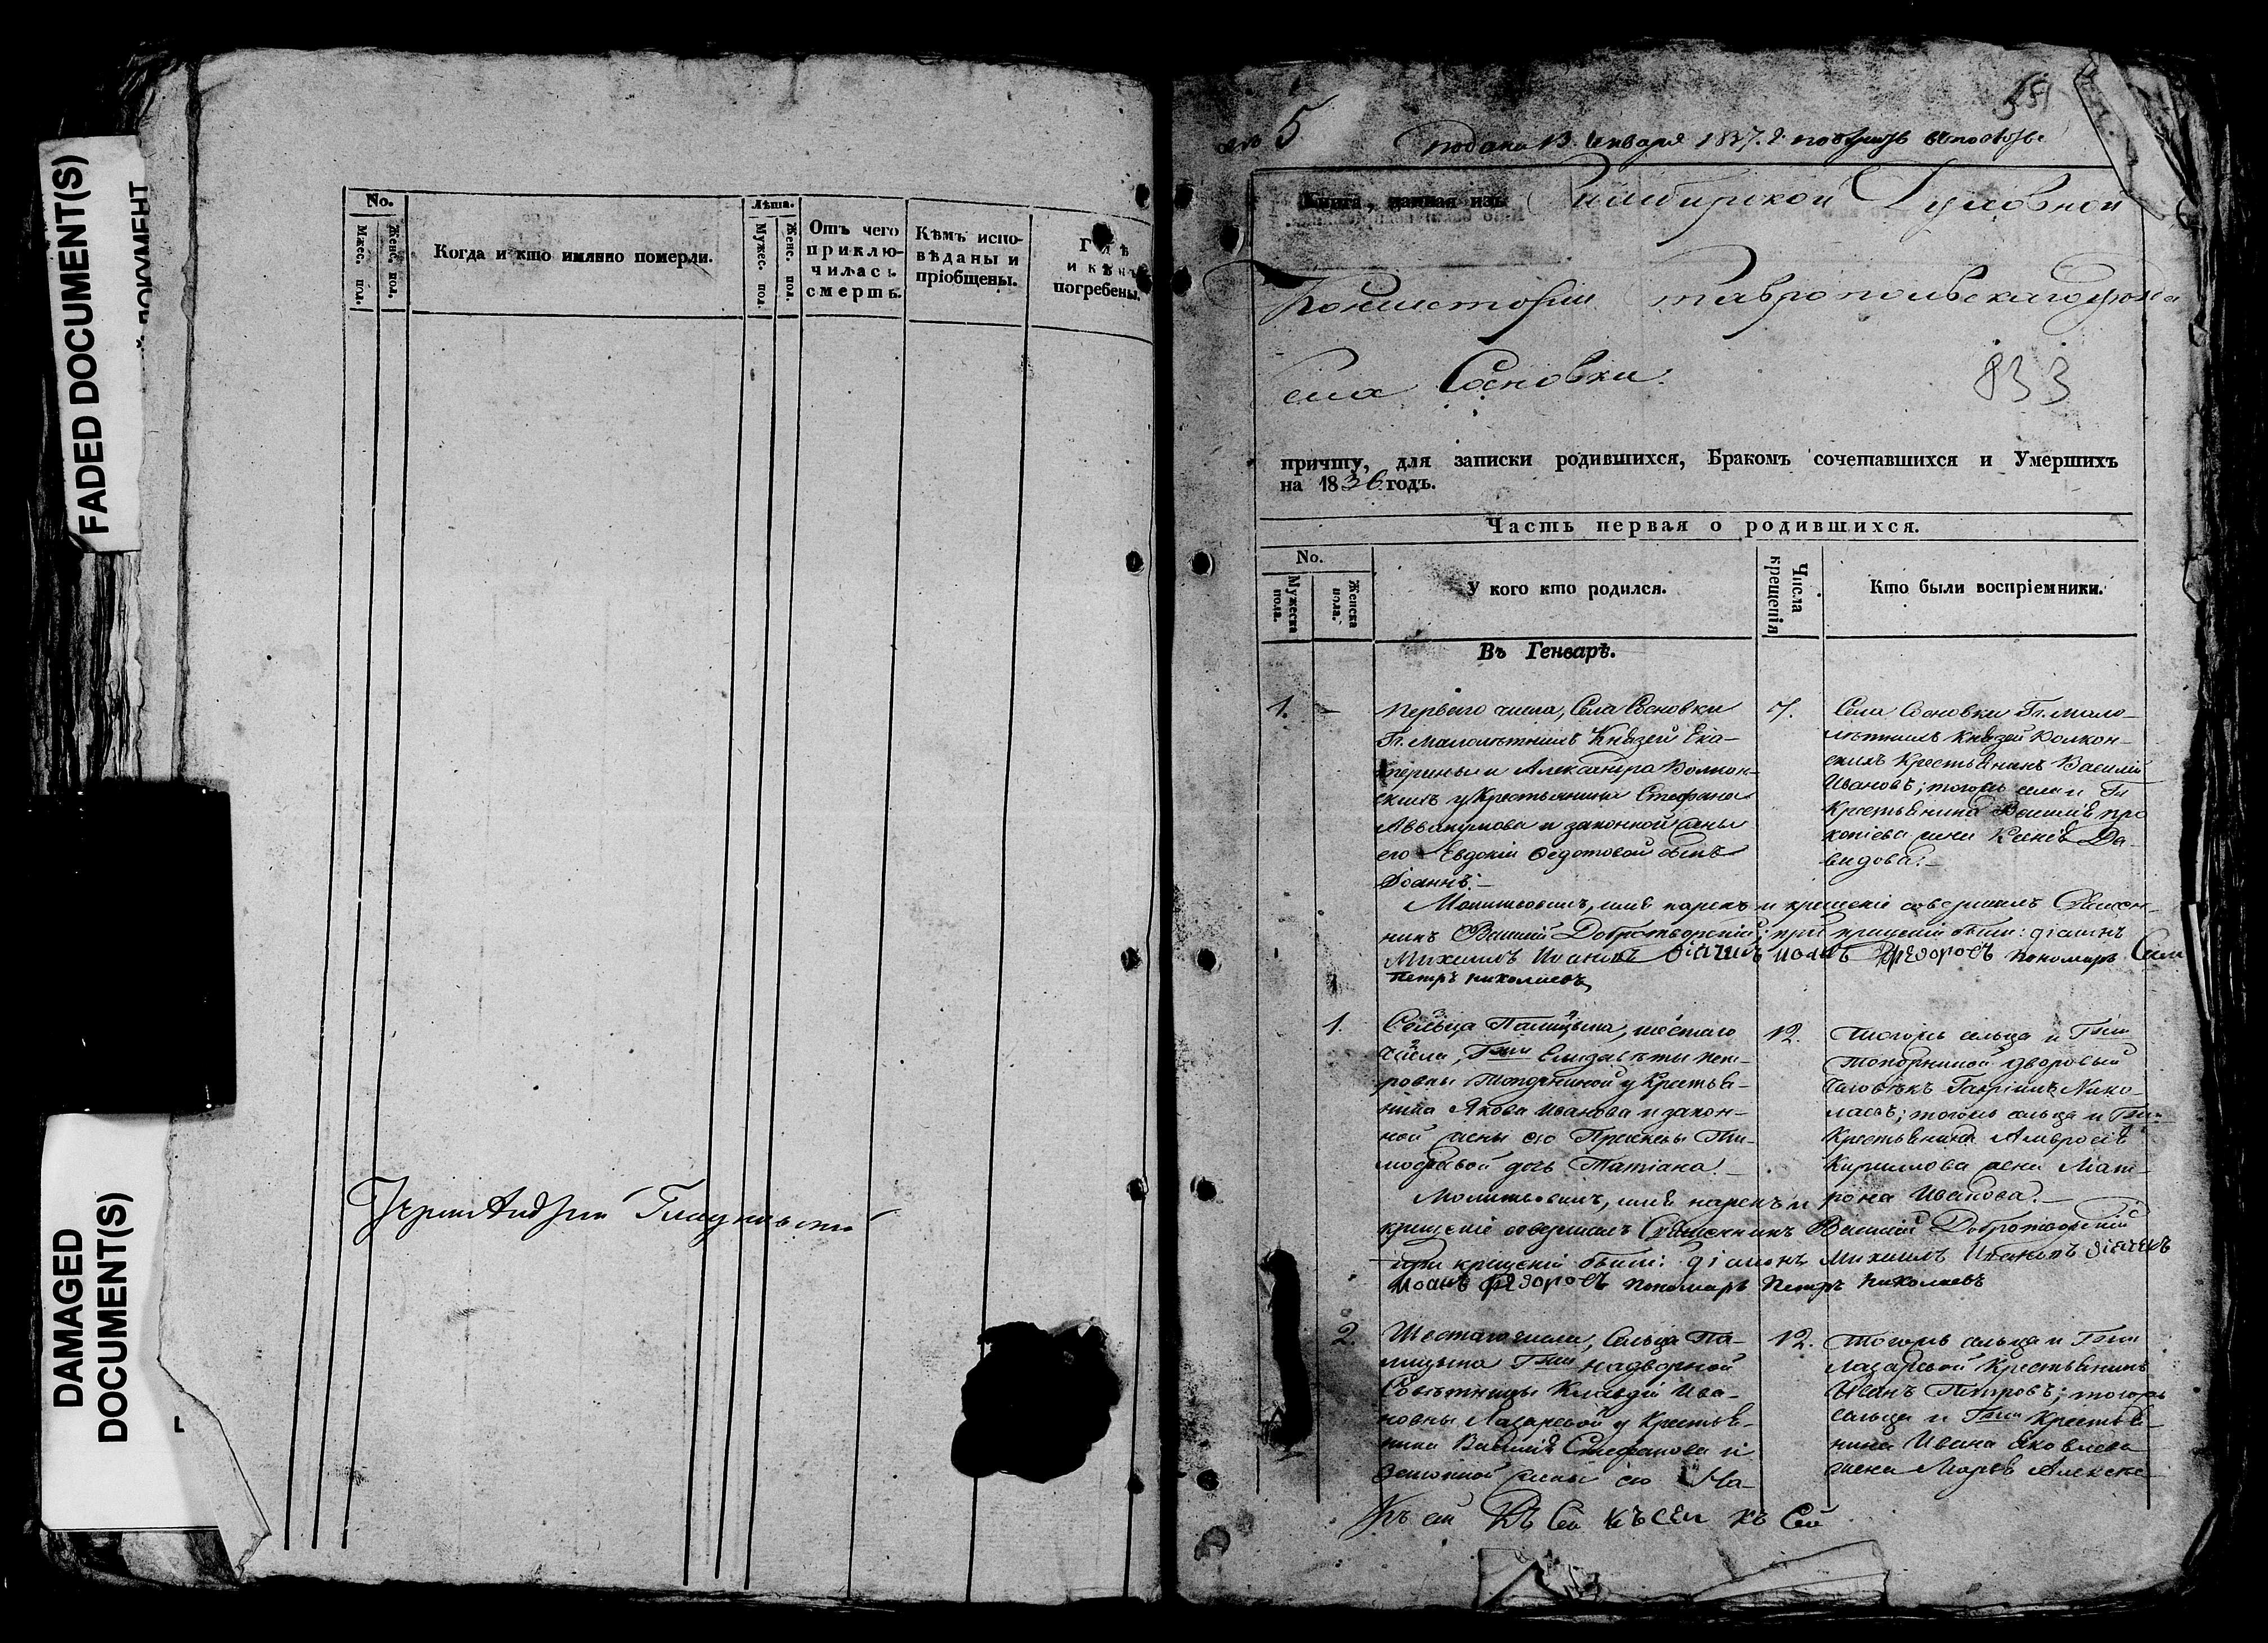 FADED DOCUMENT(S)
DAMAGED
DOCUMENT(S)
No.
Мжес. пол.
Женс. пол.
Когда и кто имянно померли.
Лѣта.
Мужес. пол.
Женс. пол.
Отъ чего
приклю-
чилась
смерть.
Кѣмъ испо-
вѣданы и
пріобщены.
Гдѣ
и кѣмъ
погребены.
5
Подана 13. Января 1837.
Книга, данная изъ Симбирской Духовной
Консисторіи Ставропольскаго уезда
села Сосновки.
833
причту, для записки родившихся, Бракомъ сочетавшихся и Умершихъ
на 1836 годъ.
Часть первая о родившихся.
No.
Мужеска
пола.
Женска
пола.
У кого кто родился.
Числа
крещенія
Кто были воспріемники.
Въ Генварѣ.
1. -
Перваго числа, Села Сосновки
Гг. Малолѣтнихъ Князей Ека-
терины и Александра Волкон-
скихъ у Крестьянина Стефана
Аввакумова и законной жены
его Евдокіи Федотовой сынъ
Іоаннъ.-
7.
Села Сосновки Гг. Мало-
лѣтнихъ Князей Волкон-
скихъ Крестьянинъ Василій
Ивановъ; тогожъ села и Гг
Крестьянина Василія Про
копіева жена Ксенія Да-
видова.-
Молитвовалъ, имя нарекъ и крещеніе совершалъ Священ-
никъ Василій Добротворскій; при крещеніи были: діаконъ
Михаилъ Ивановъ діячикъ Иоанъ Федоровъ пономарь
Петръ Николаевъ
1.
Сельца Палицына, шестаго
числа, Гжи Елизаветы Пет-
ровны Топорниной у Крестья-
нина Якова Иванова и закон-
ной жены его Прасковьи Ти-
мофеевой дочь Татіана.-
12.
Тогожъ сельца и Гжи
Топорниной дворовый
человѣкъ Гавріилъ Нико-
лаевъ; тогожъ сельца и Гжи
Крестьянина Амвросія
Кириллова жена Мат-
рона Иванова.-
Молитвовалъ, имя нарекъ и
крещеніе совершалъ Священникъ Василій Добротворскій
при крещеніи были: діаконъ Михаилъ Ивановъ діячекъ
Иоанъ Федоровъ пономарь Петръ Николаевъ
2.
Шестаго числа, Сельца Па-
лицына Гжи надворной
Совѣтницы Клавдіи Ива-
новны Лазаревой у Крестья-
нина Василія Стефанова и
законной жены его На-
12.
Тогожъ сельца и Гжи
Лазаревой Крестьянинъ
Иванъ Петровъ; тогожъ
сельца и Гжи Крестья-
нина Ивана Яковлева
жена Марья Алексѣе
Къ сей Къ сей Къ сей Къ сей